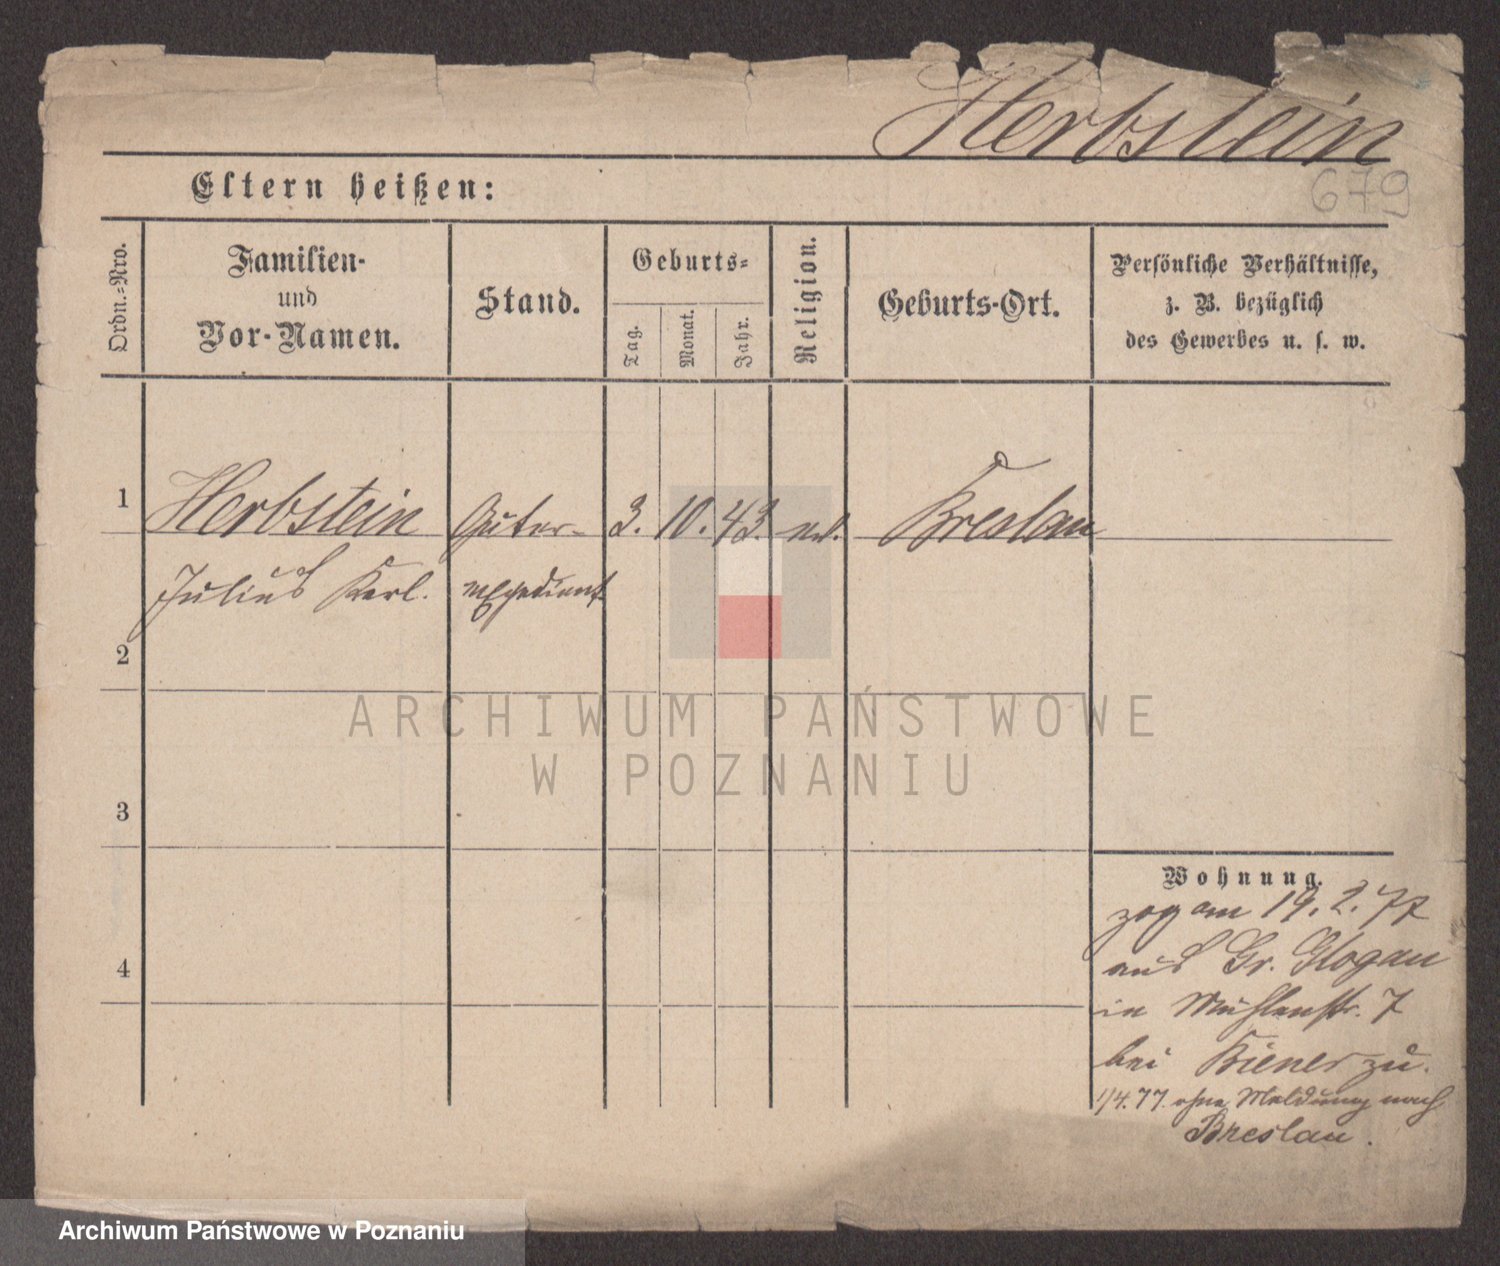 Herbstein
679
Eltern heißen:
Ordn.-Nro.
Familien-
und
Vor-Namen.
Stand.
Geburts-
Tag.
Monat.
Jahr.
Religion.
Geburts-Ort.
Persönliche Verhältnisse,
z. B. bezüglich
des Gewerbes u. s. w.
1
Herbstein
Güter-
3.
10.
43.
ev.
Breslau
Julius Karl.
expedient
2
ARCHIWUM PAŃSTWOWE
W POZNANIU
3
4
Wohnung.
zog am 19. 2. 77
aus Gr. Glogau
in Mühlenstr. 7
bei Kiener zu.
1/4. 77. ohne Meldung nach
Breslau.
Archiwum Państwowe w Poznaniu